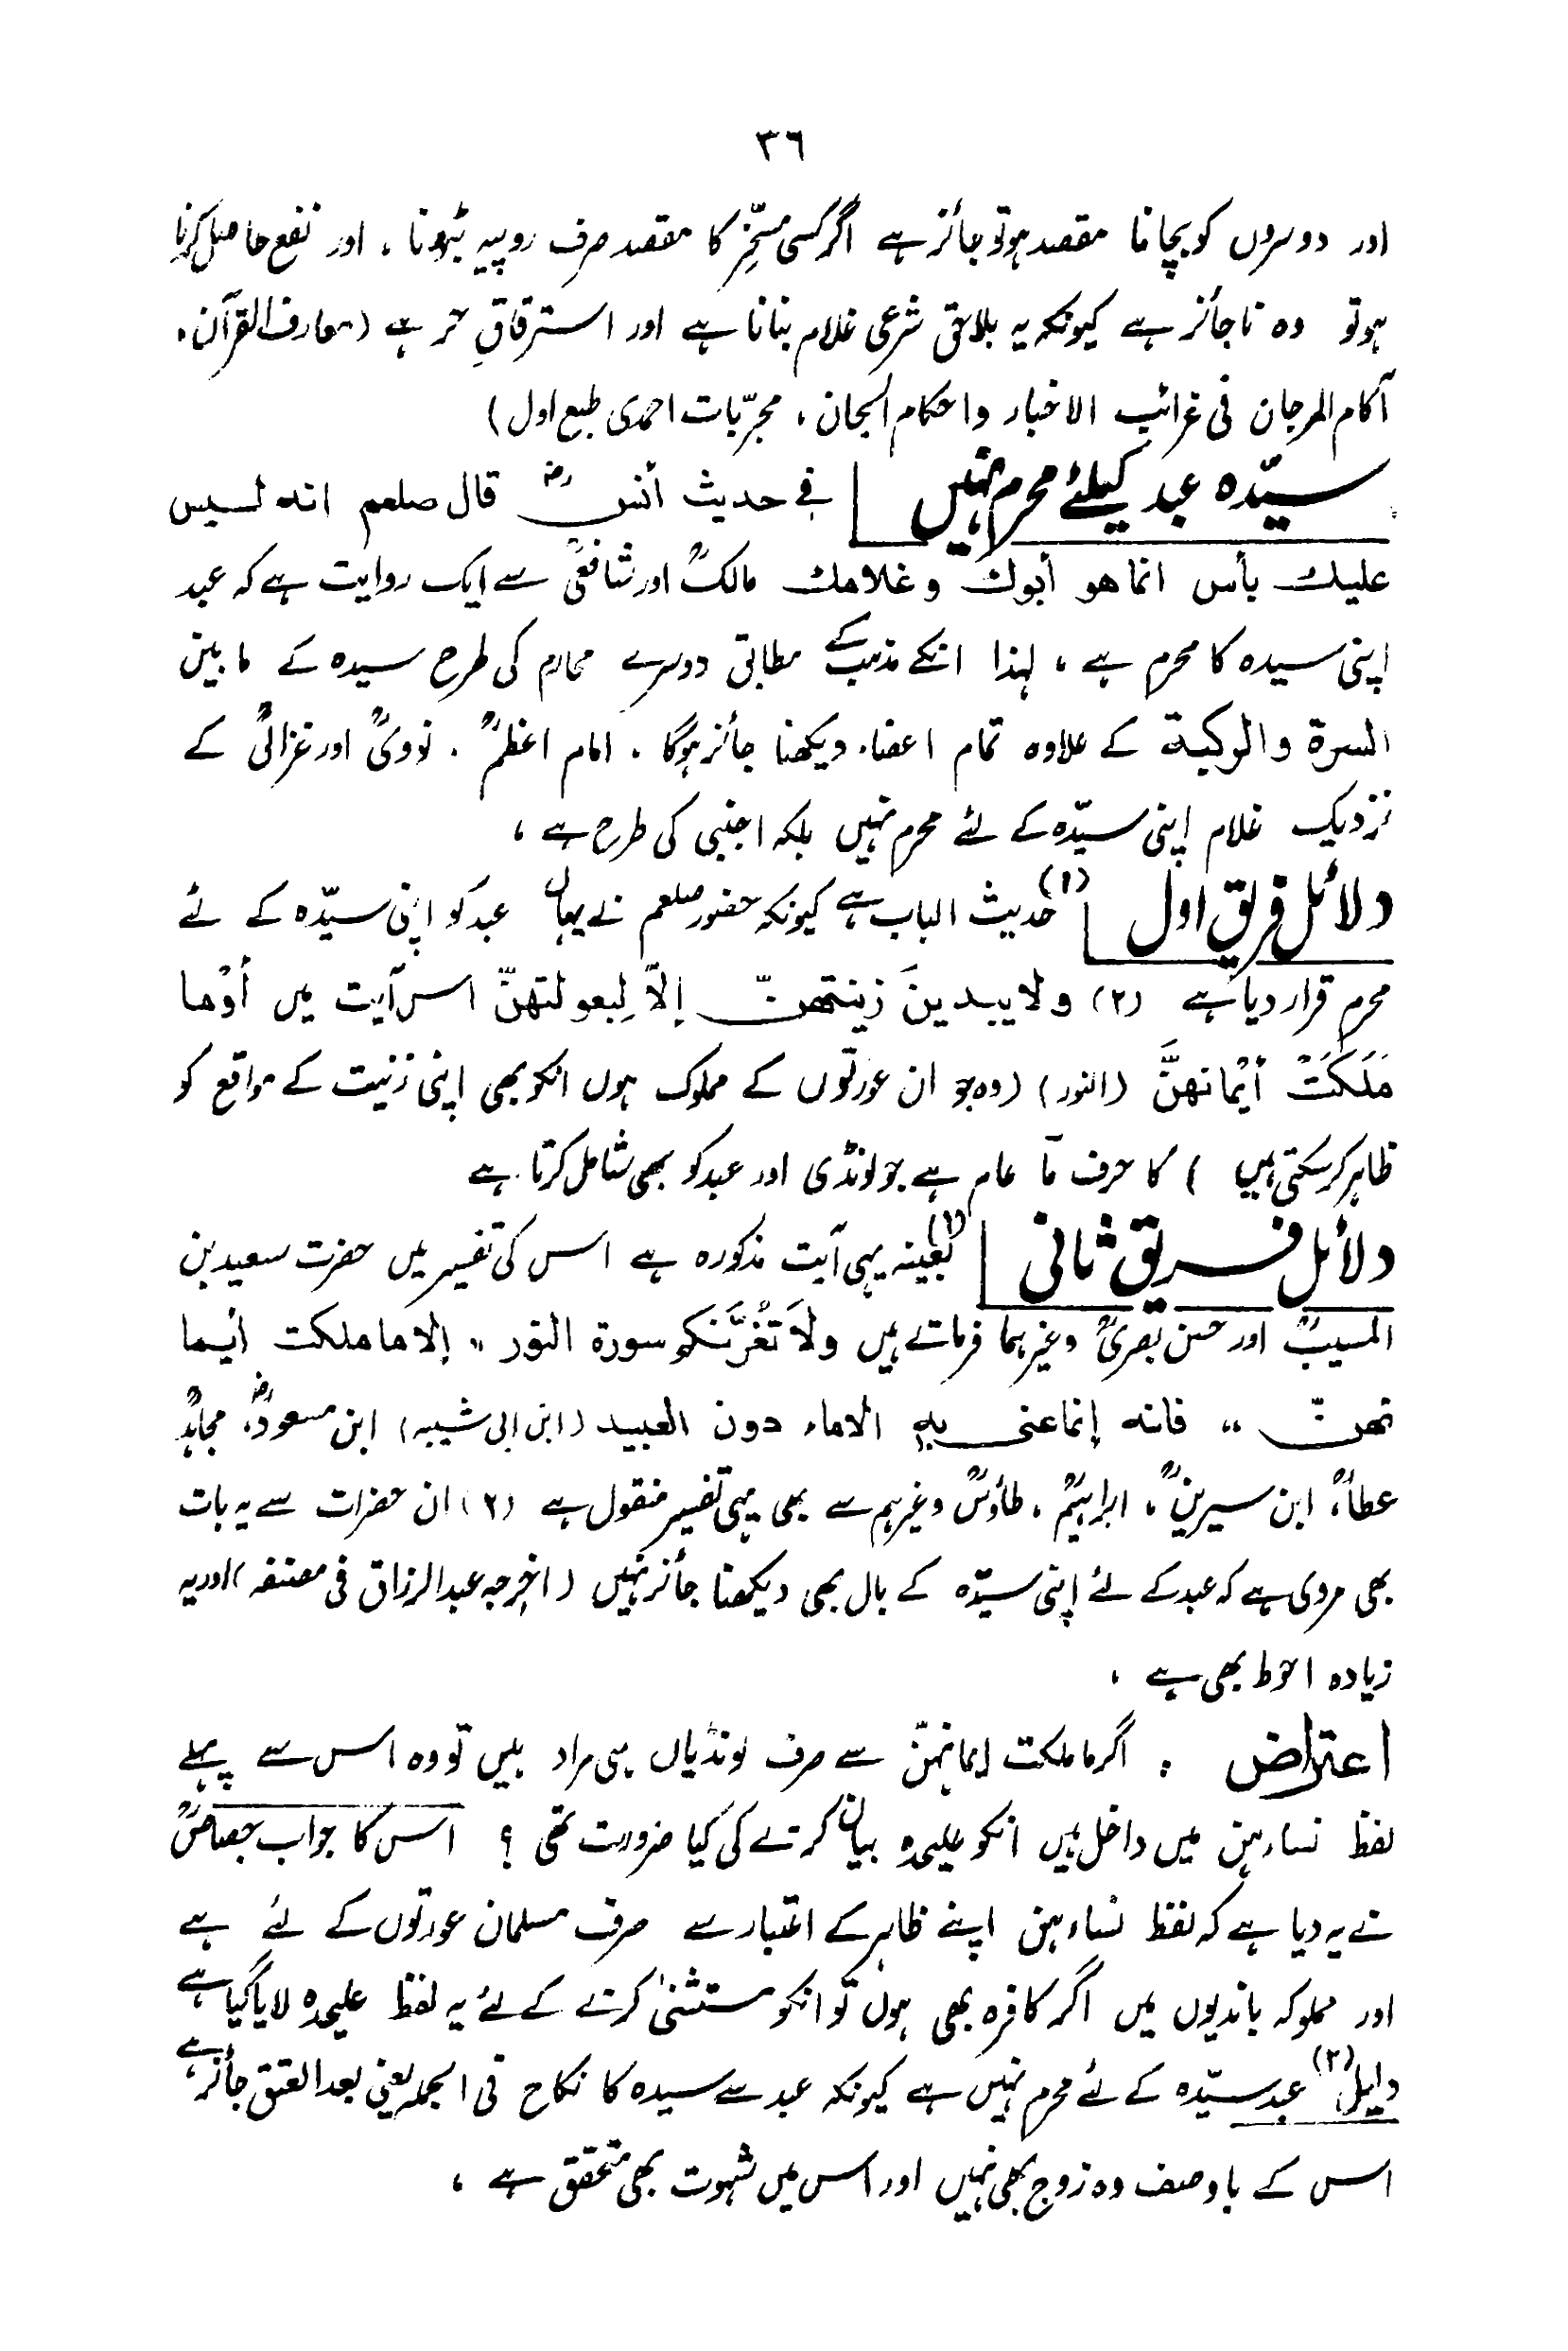 ٣٦
اور دوسروں کو بچانا مقصد ہو تو جائز ہے اگر کسی مسخّرِ کا مقصد صرف روپیہ بٹورنا ، اور نفع حاصل کرنا
ہو تو وہ ناجائز ہے کیونکہ یہ بلاحق شرعی غلام بنانا ہے اور استرقاقِ حر ہے (معارف القرآن ،
آکام المرجان فی غرائب الاخبار واحکام الجان ، مجرّبات احمدی طبع اول)
سیّدہ عبد کیلئے محرم نہیں فی حدیث أنسؓ قال صلعم انه ليس
عليك بأس انما هو أبوك وغلامك مالکؒ اور شافعیؒ سے ایک روایت ہے کہ عبد
اپنی سیدہ کا محرم ہے ، لہذا انکے مذہب کے مطابق دوسرے محارم کی طرح سیدہ کے مابین
السرۃ والرکبۃ کے علاوہ تمام اعضاء دیکھنا جائز ہوگا ۔ امام اعظمؒ ۔ نوویؒ اور غزالیؒ کے
نزدیک غلام اپنی سیّدہ کے لئے محرم نہیں بلکہ اجنبی کی طرح ہے ،
دلائل فریق اول (۱) حدیث الباب ہے کیونکہ حضور صلعم نے یہاں عبد کو اپنی سیّدہ کے لئے
محرم قرار دیا ہے (۲) ولا يبدينَ زينتهنّ إلاّ لِبعولتهنّ اس آیت میں أوْما
مَلَكَتْ أيْمانهنَّ (النور) (وہ جو ان عورتوں کے مملوک ہوں انکو بھی اپنی زینت کے مواقع کو
ظاہر کرسکتی ہیں ) کا حرف مَا عام ہے جو لونڈی اور عبد کو بھی شامل کرتا ہے
دلائل فریق ثانی (۱) بعینہ یہی آیت مذکورہ ہے اس کی تفسیر میں حضرت سعید بن
المسیبؒ اور حسن بصریؒ وغیرہما فرماتے ہیں ولاَ تَغُرَّنَكم سورة النور ,, إلا ما ملكت أيما
نهنّ ,, فانه إنما عنى به الاماء دون العبيد (ابن ابی شیبہ) ابن مسعودؓ، مجاہدؒ
عطاءؒ، ابن سیرینؒ ، ابراہیمؒ ، طاؤسؒ وغیرہم سے بھی یہی تفسیر منقول ہے (۲) ان حضرات سے یہ بات
بھی مروی ہے کہ عبد کے لئے اپنی سیّدہ کے بال بھی دیکھنا جائز نہیں (اخرجہ عبد الرزاق فی مصنفہ) اور یہ
زیادہ احوط بھی ہے ،
اعتراض : اگر ما ملکت ایمانہنّ سے صرف لونڈیاں ہی مراد ہیں تو وہ اس سے پہلے
لفظ نساءہن میں داخل ہیں انکو علیحدہ بیان کرنے کی کیا ضرورت تھی ؟ اس کا جواب جصاصؒ
نے یہ دیا ہے کہ لفظ نساءہن اپنے ظاہر کے اعتبار سے صرف مسلمان عورتوں کے لئے ہے
اور مملوکہ باندیوں میں اگر کافرہ بھی ہوں تو انکو مستثنیٰ کرنے کے لئے یہ لفظ علیحدہ لایا گیا ہے
دلیل (۳) عبد سیّدہ کے لئے محرم نہیں ہے کیونکہ عبد سے سیدہ کا نکاح فی الجملہ یعنی بعد العتق جائز ہے
اس کے باوصف وہ زوج بھی نہیں اور اس میں شہوت بھی متحقق ہے ،